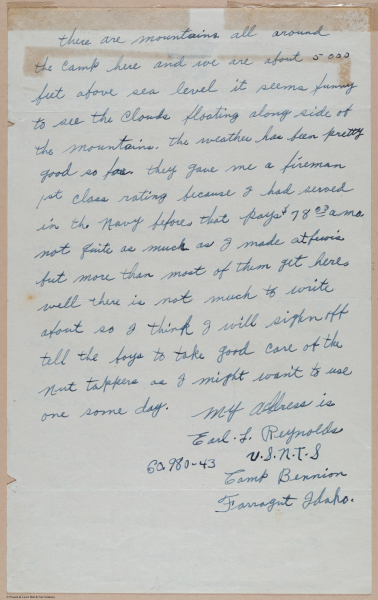 there are mountains all around
the camp here and we are about 5000
feet above sea level it seems funny
to see the clouds floating along side of
the mountains. the weather has been pretty
good so far. they gave me a fireman
1st class rating because I had served
in the navy before that pays $78 a mo
not quite as much as I made at
but more than most of them get here
well there is not much to write
about so I think I will sign off
tell the boys to take good care of the
nut tappers as I might want to use
one some day.
My Address is
Earl. L. Reynolds
U.S.N.T.S
Camp Bennion
Farragut Idaho.
60.980-43